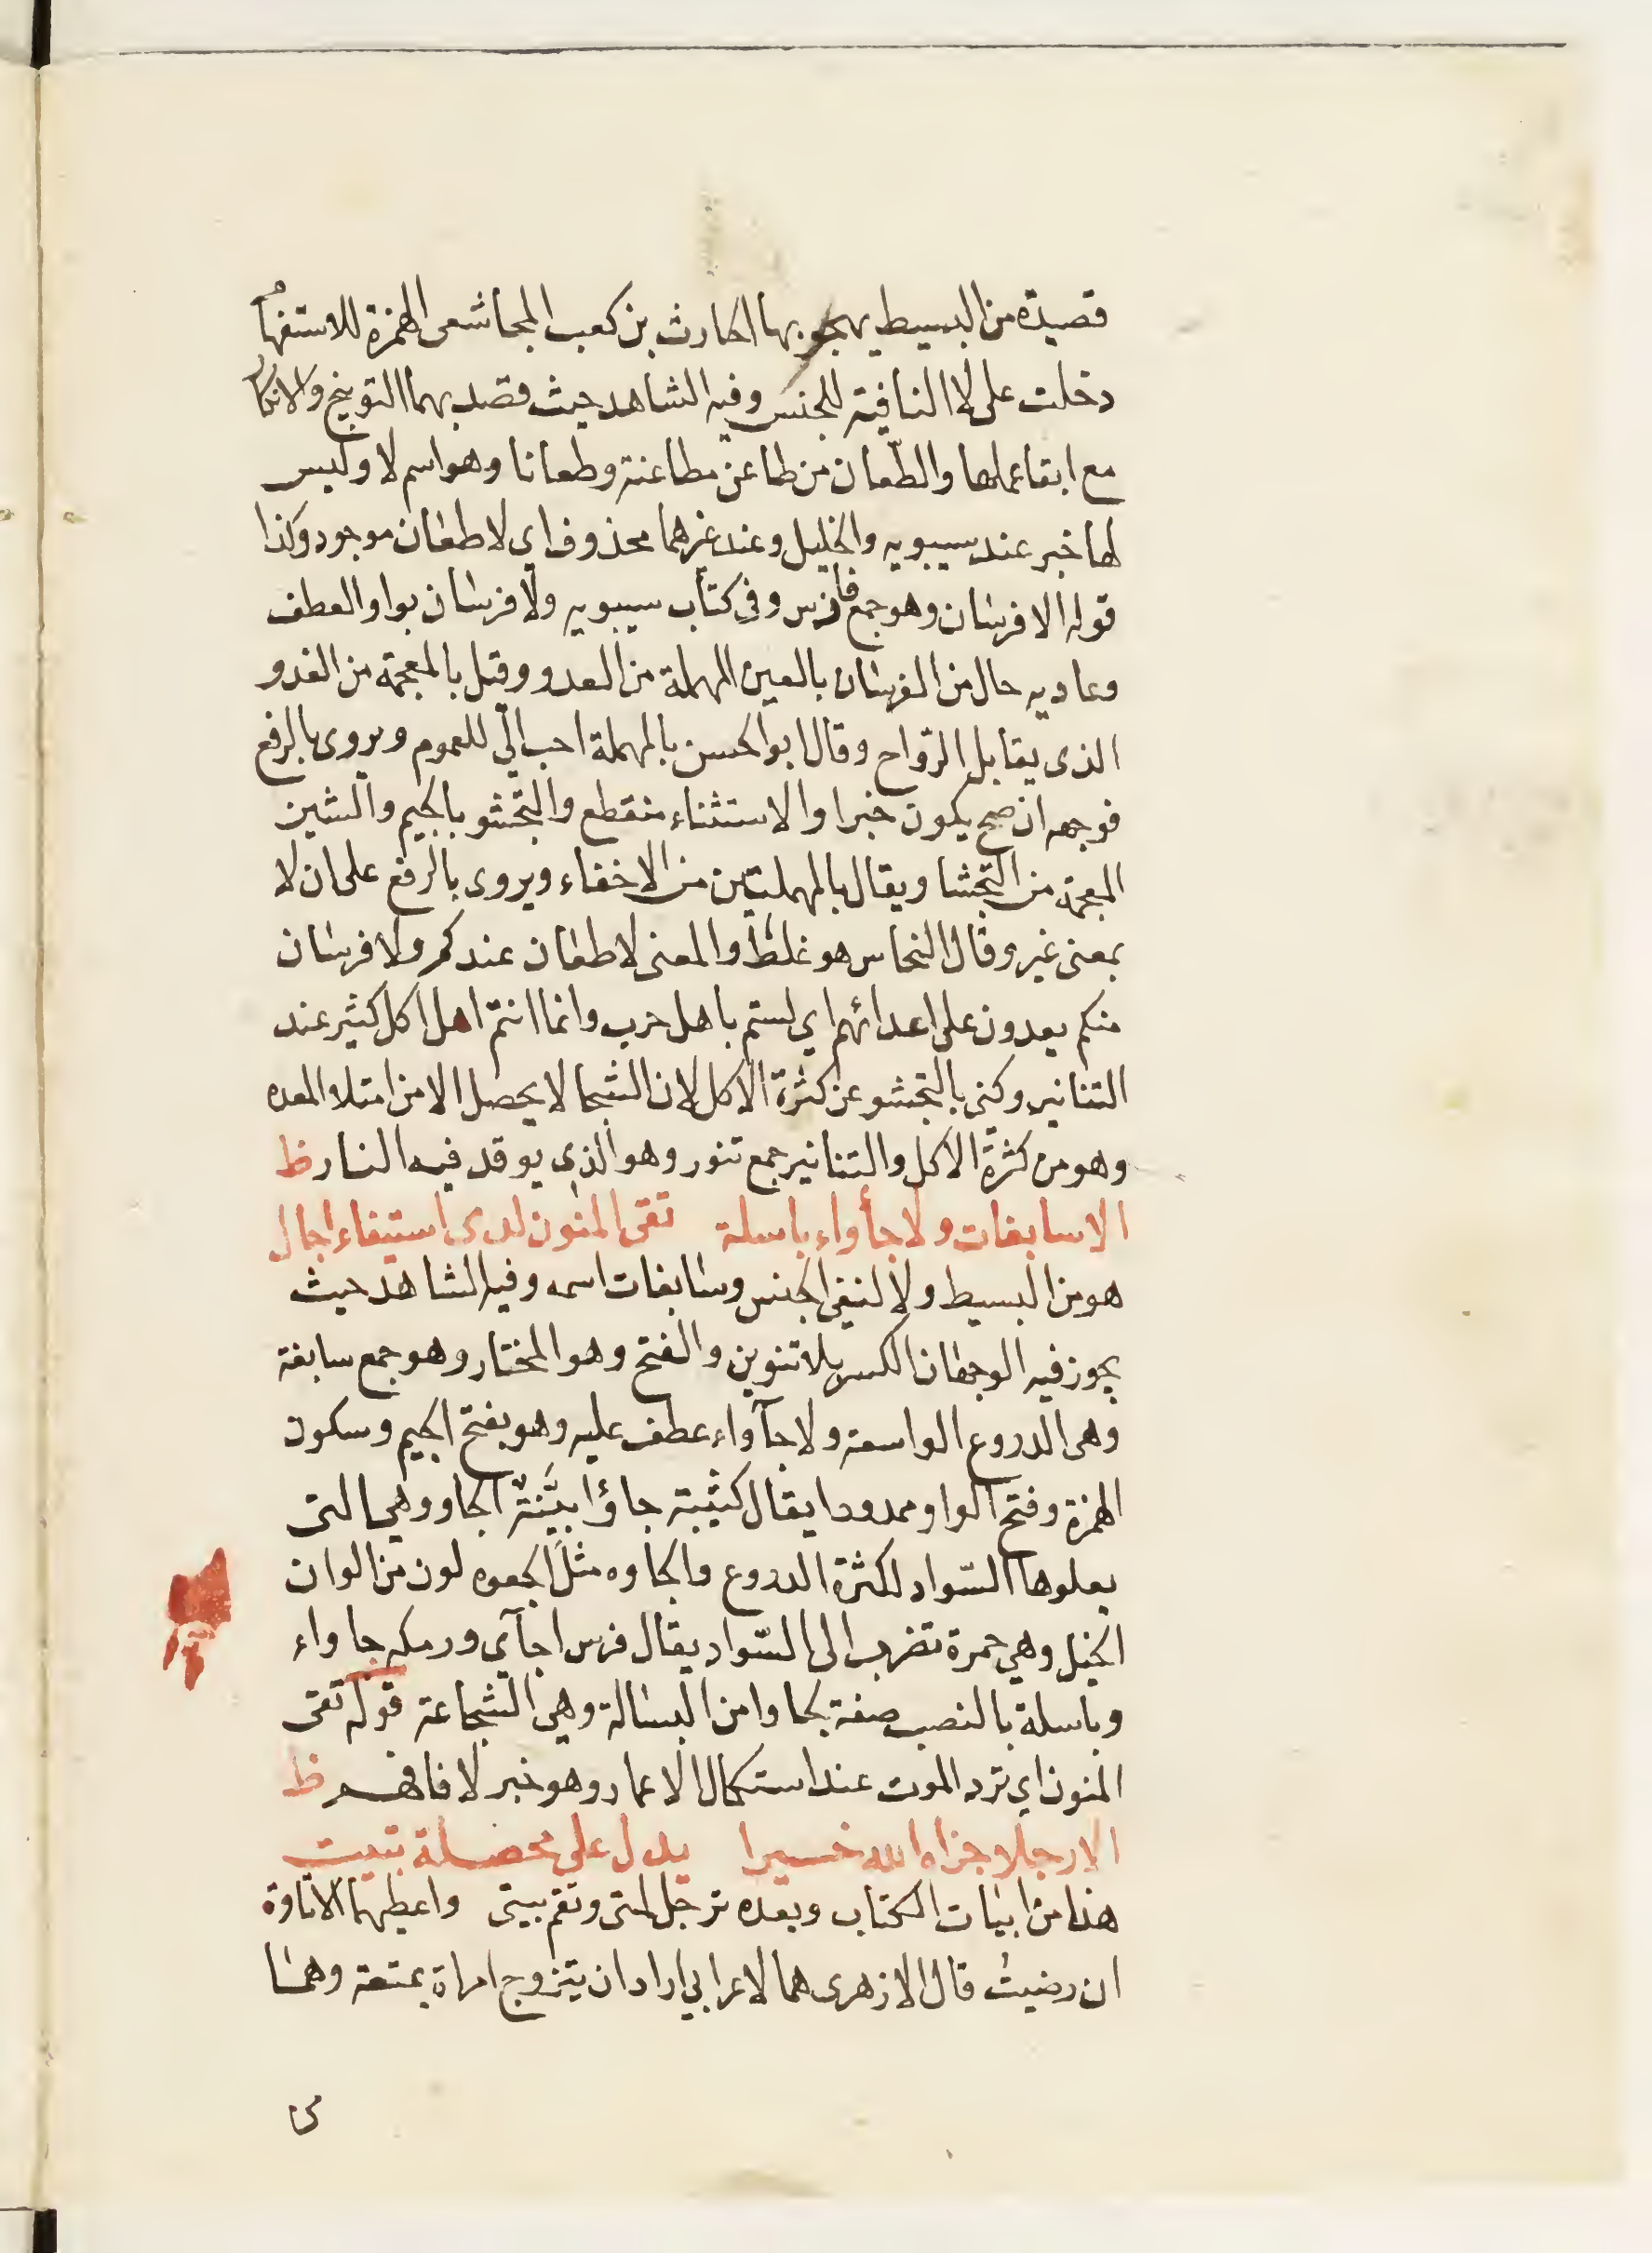 قصيدة من البسيط يهجو بها الحارث بن كعب المجاشعى الهمزة للاستفهام
دخلت على لا النافية للجنس وفيه الشاهد حيث قصد بهما التوبيخ والانكار
مع ابقا عملها والطّعان من طاعن مطاعنة وطعانا وهو اسم لا وليس
لها خبر عند سيبويه والخليل وعند غيرهما محذوف اي لا طعان موجود وكذا
قوله الا فرسان وهو جمع فارس وفي كتاب سيبويه ولا فرسان بواو العطف
وعاديه حال من الفرسان بالعين المهملة من العدو وقيل بالمعجمة من الغدو
الذى يقابل الرّواح وقال ابو الحسن بالمهملة احب اليّ للعموم ويروى بالرفع
فوجهه ان صح يكون خبرا والاستثناء منقطع والتجشو بالجيم والشين
المعجمة من التجشا ويقال بالمهملتين من الاخفاء ويروى بالرفع على ان لا
بمعنى غير وقال النحاس هو غلط والمعنى لا طعان عندكم ولا فرسان
منكم يعدون على اعدائهم اي لستم باهل حرب وانما انتم اهل اكل كثير عند
التنانير وكنى بالتجشو عن كثرة الاكل لان الشجا لا يحصل الا من امتلا المعده
وهو من كثرة الاكل والتنانير جمع تنور وهو الذي يوقد فيه النار ظ
الا سابغات ولا جأواء باسلة تقى المنون لدى استيفاء اجال
هو من البسيط ولا لنفى الجنس وسابغات اسمه وفيه الشاهد حيث
يجوز فيه الوجهان الكسر بلا تنوين والفتح وهو المختار وهو جمع سابغة
وهى الدروع الواسعة ولا جآواء عطف عليه وهو بفتح الجيم وسكون
الهمزة وفتح الواو ممدودا يقال كثيبة جاؤا بيّنة الجاو وهي التى
يعلوها السّواد لكثرة الدروع والجاوه مثل الجعوه لون من الوان
الخيل وهي حمرة تضرب الى السّواد يقال فرس اجآى ورمكه جاواء
وباسلة بالنصب صفة لجاوا من البسالة وهي الشجاعة قوله تقى
المنون اي ترد الموت عند استكمال الاعمار وهو خبر لا فافهم ظ
الا رجلا جزاه الله خيرا يدل على محصلة تبيت
هذا من ابيات الكتاب وبعده ترجل لمتى وتقم بيتى واعطيها الاتاوة
ان رضيت قال الازهرى هما لاعرابي اراد ان يتزوج امراة بمتعة وهما